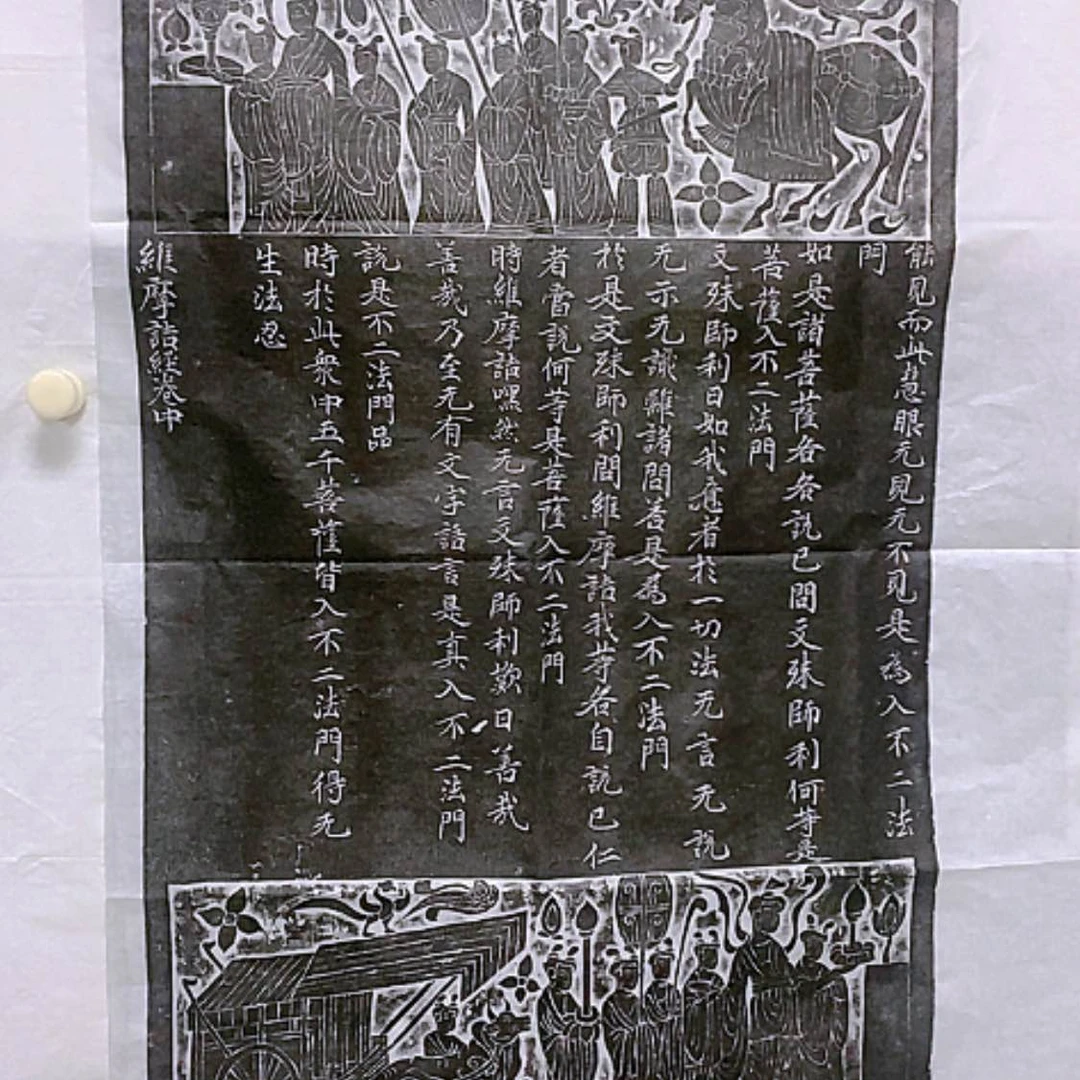 能見而此慧眼无見无不見是為入不二法
門
如是諸菩薩各各説已問文殊師利何等是
菩薩入不二法門
文殊師利曰如我意者於一切法无言无説
无示无識離諸問荅是為入不二法門
於是文殊師利問維摩詰我等各自説已仁
者當説何等是菩薩入不二法門
時維摩詰嘿然无言文殊師利歎曰善哉
善哉乃至无有文字語言是真入不二法門
説是不二法門品
時於此衆中五千菩薩皆入不二法門得无
生法忍
維摩詰經卷中